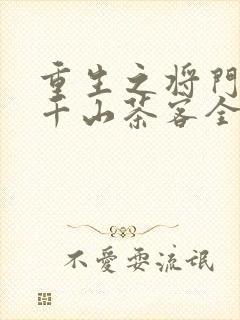 重生之将门
千山茶客全
不愛耍流氓